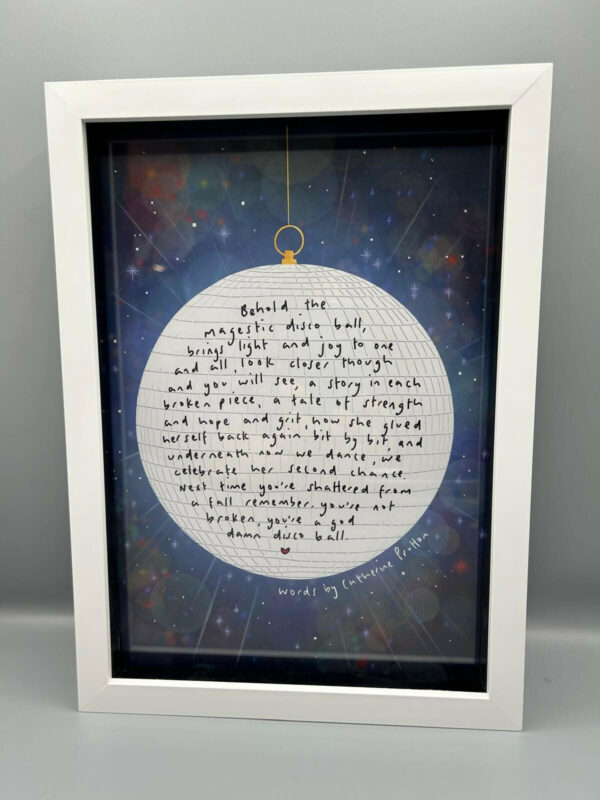 Behold the
magestic disco ball,
brings light and joy to one
and all, look closer though
and you will see, a story in each
broken piece, a tale of strength
and hope and grit, how she glued
herself back again bit by bit, and
underneath now we dance, we
celebrate her second chance.
Next time you're shattered from
a fall remember, you're not
broken, you're a god
damn disco ball.
words by Catherine Prutton